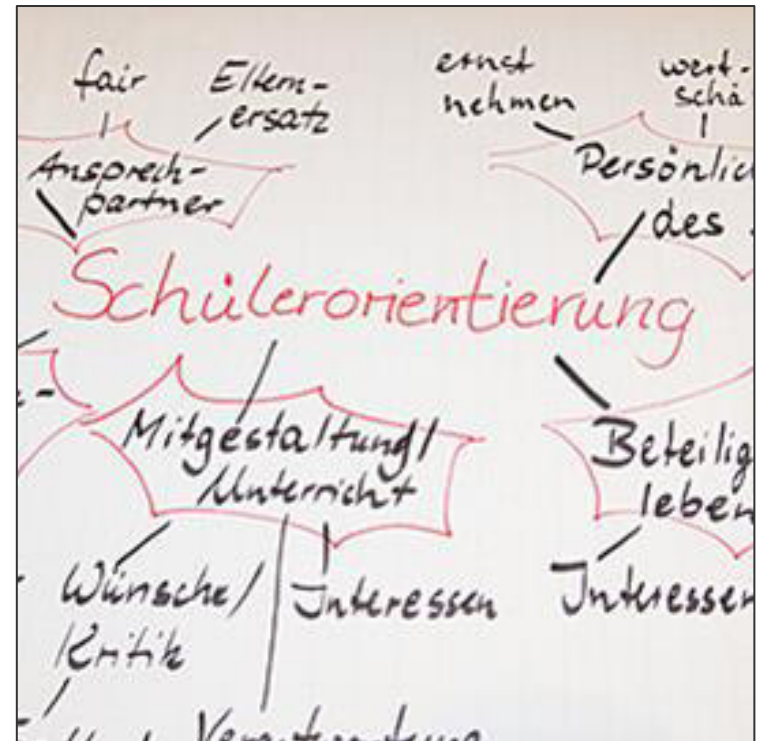 fair
Eltern-
ersatz
ernst
nehmen
wert-
schä
Ansprech-
partner
Persönlic
des
Schülerorientierung
Mitgestaltung/
Unterricht
Beteilig
leben
Wünsche/
Kritik
Interessen
Interessen